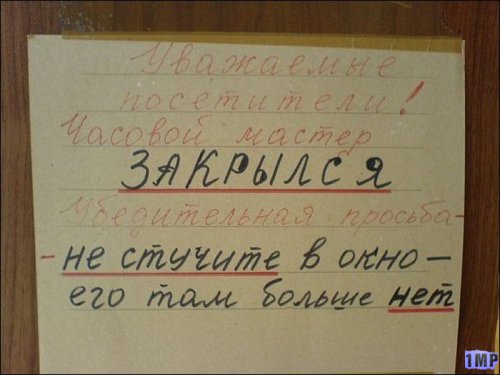 Уважаемые
посетители!
Часовой мастер
ЗАКРЫЛСЯ
Убедительная просьба-
-не стучите в окно—
его там больше нет
1MP